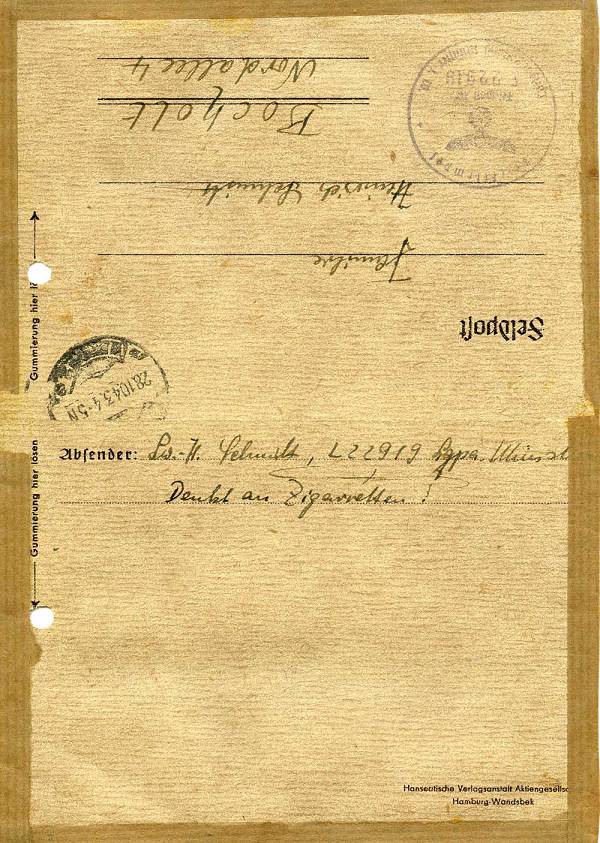 Feldpost
Familie
Heinrich Schmidt
Bocholt
Nordallee 4
28.10.43.4-5N
Gummierung hier
Gummierung hier lösen
Absender: Lw.-H. Schmidt, L22919 Lgpa. Münst
Denkt an Zigarretten!
Hanseatische Verlagsanstalt Aktiengesellsc
Hamburg-Wandsbek